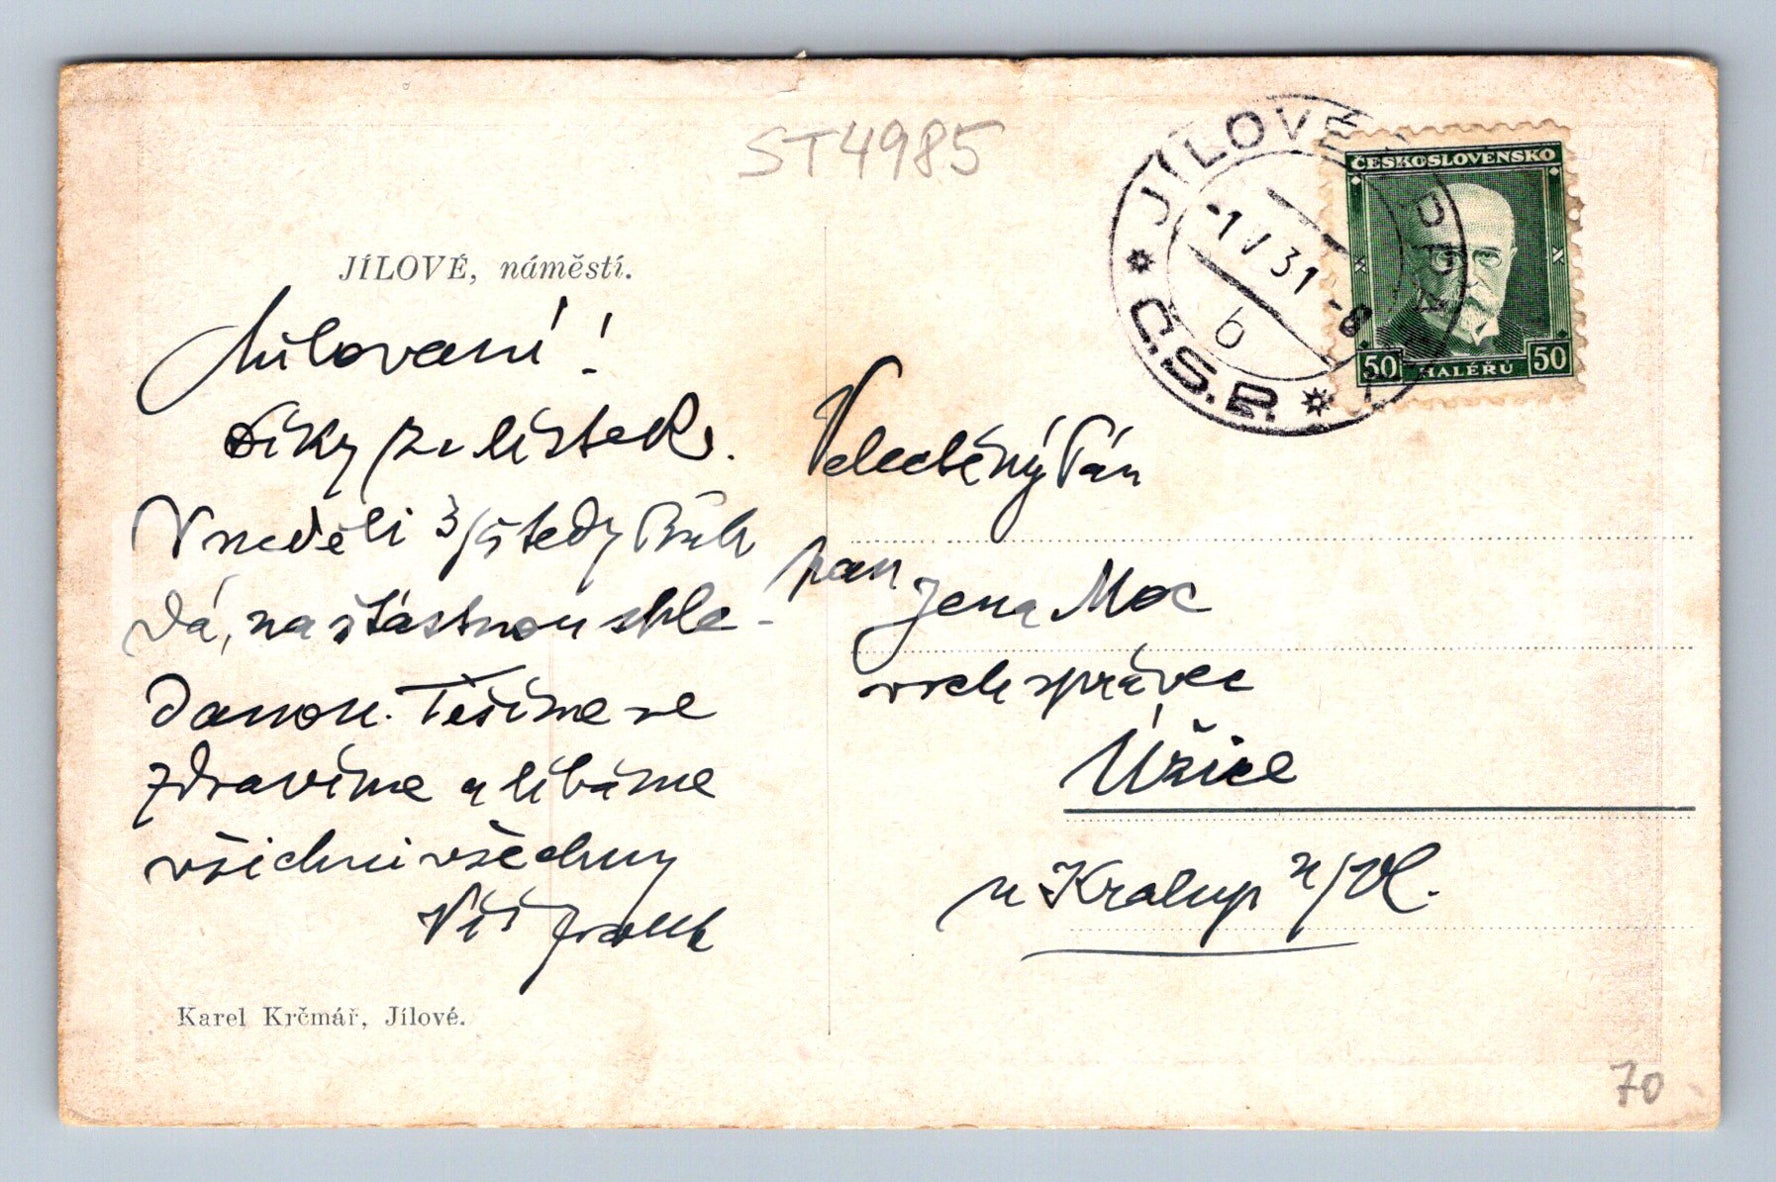 ST4985
JÍLOVÉ, náměstí.
Milovaní!
Díky za lístek.
V neděli 3/5 tedy Bůh
dá, na šťastnou shle-
danou. Těšíme se
zdravíme a líbáme
všichni všechny
Váš
Karel Krčmář, Jílové.
JÍLOVÉ U PRAHY
-1 V 31 -8
b
Č.S.P.
ČESKOSLOVENSKO
50 HALÉŘŮ 50
Velectěný Pán
pan
Jena Moc
vrch správce
Úžice
u Kralup n/Vl.
70